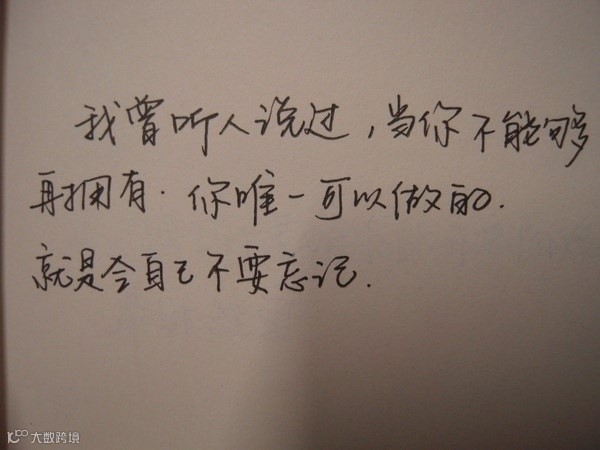 我曾听人说过，当你不能够
再拥有.你唯一可以做的.
就是令自己不要忘记.
大数跨境